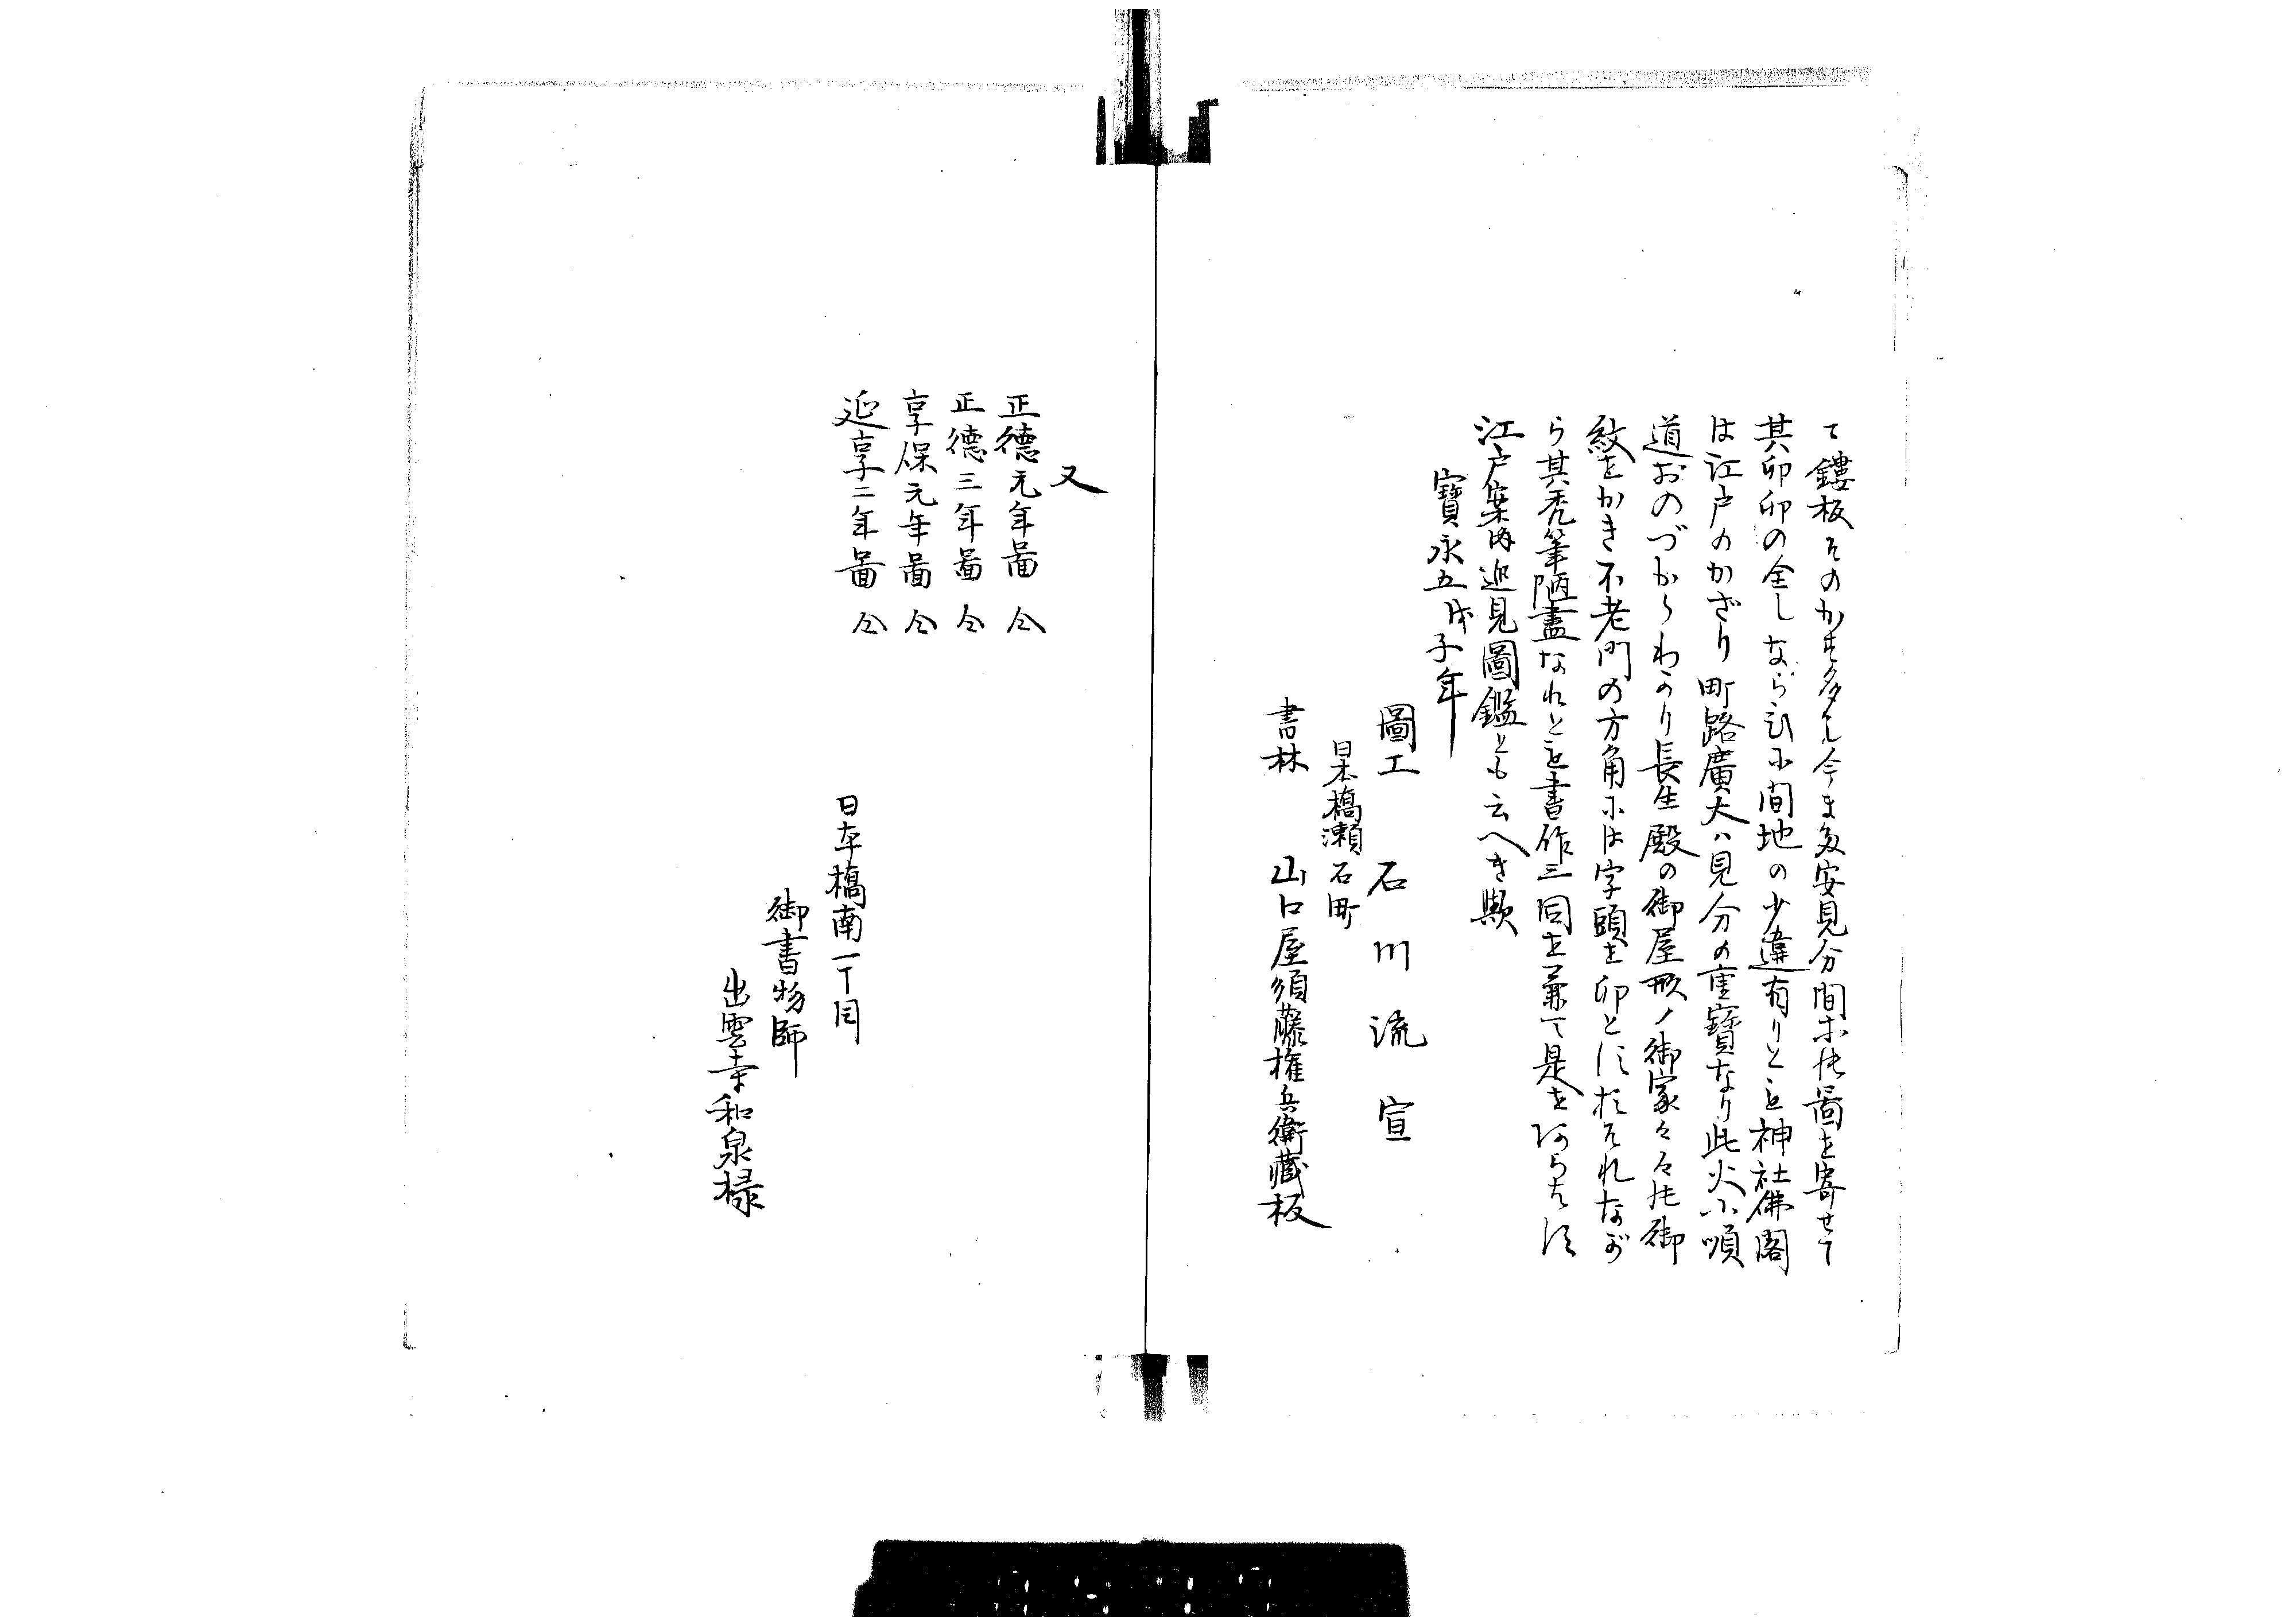 て鏤板そのかす多し今ま多安見分間等此圖を寄せて
其印印の全しならひに間地の少違有りとも神社佛閣
は江戸のかざり町路廣大ハ見分の重寶なり此火に順
道おのづからわかり長生殿の御屋形ノ御家々々此御
紋をかき不老門の方角には字頭を印とにおそれなが
ら其禿筆陋畫なれとも書作三同を兼て是をあらたに
江戸案内巡見圖鑑とも云へき歟
寳永五戊子年
圖工　石川流宣
日本橋瀬石町
書林　山口屋須藤権兵衛藏板
又
正德元年啚 仝
正德三年啚 仝
享保元年啚 仝
延享二年啚 仝
日本橋南一丁目
御書物師
出雲寺和泉椽